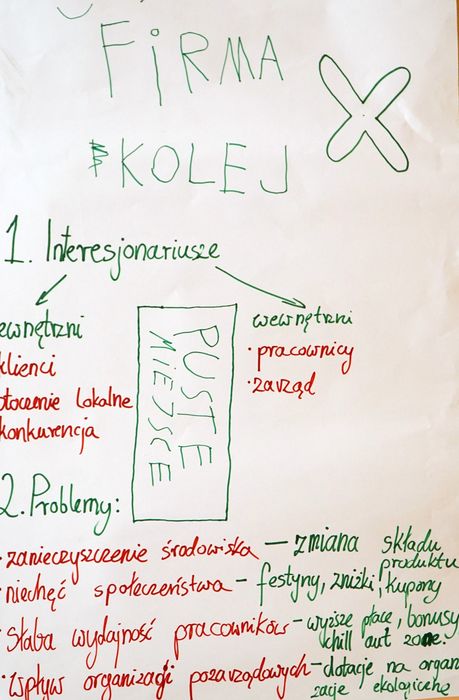 FIRMA
KOLEJ
X
1. Interesjonariusze
ewnętrzni
klienci
otoczenie lokalne
konkurencja
PUSTE
MIEJSCE
wewnętrzni
· pracownicy
· zarząd
2. Problemy:
· zanieczyszczenie środowiska — zmiana składu produktu
· niechęć społeczeństwa – festyny, zniżki, kupony
· słaba wydajność pracowników – wyższe płace, bonusy
chill out zone.
· wpływ organizacji pozarządowych – dotacje na organi
zacje ekologiczne